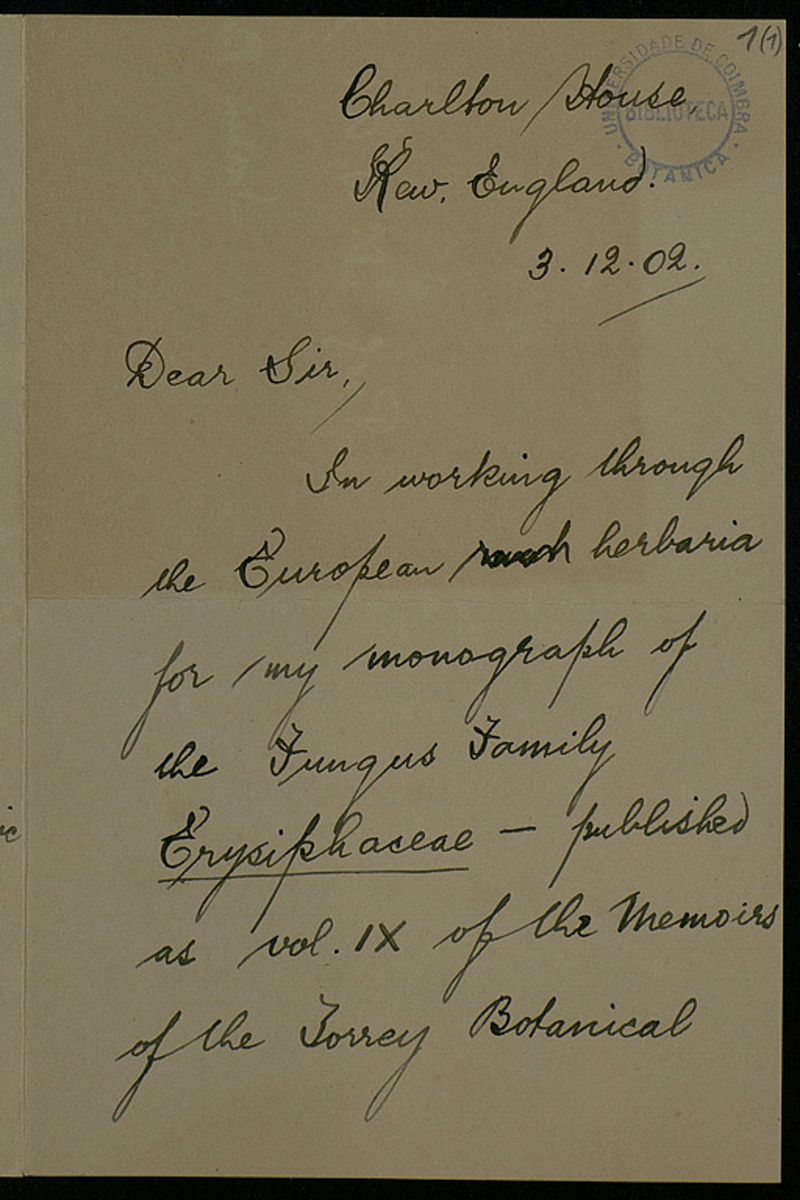 1(1)
UNIVERSIDADE DE COIMBRA
BIBLIOTECA
BOTANICA
Charlton House,
Kew. England.
3. 12. 02.
Dear Sir,
In working through
the European herbaria
for my monograph of
the Fungus Family
Erysiphaceae — published
as vol. IX of the Memoirs
of the Torrey Botanical